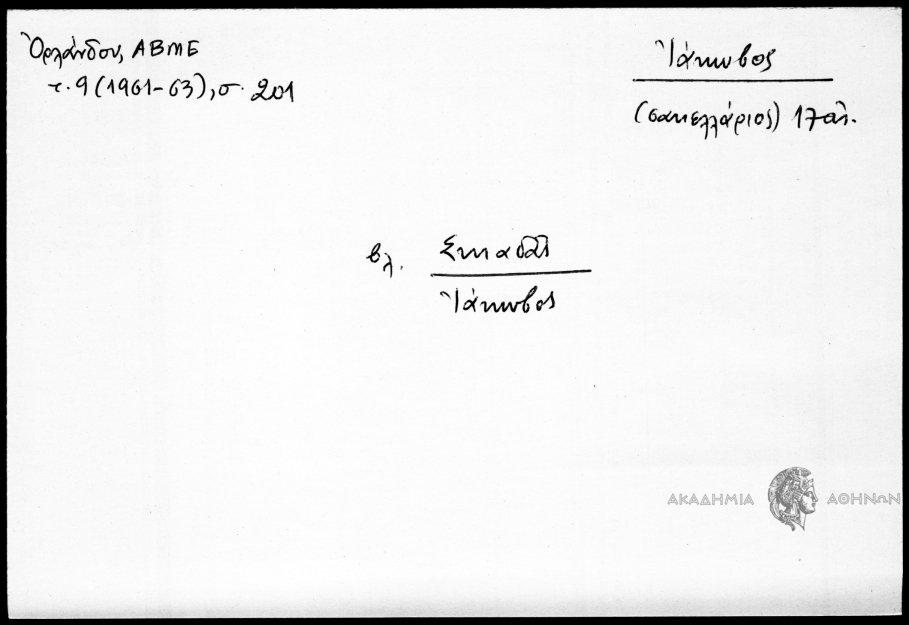 Ὀρλάνδου, ΑΒΜΕ
τ. 9 (1961-63), σ. 201
Ἰάκωβος
(σακελλάριος) 17 αἰ.
βλ. Σκιαδᾶς
Ἰάκωβος
ΑΚΑΔΗΜΙΑ ΑΘΗΝΩΝ